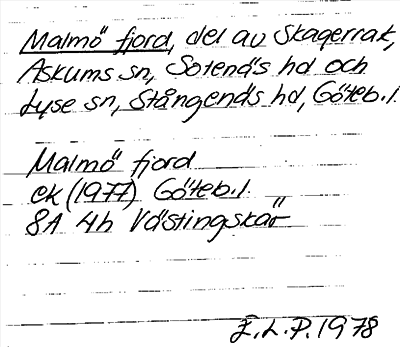 Malmö fjord, del av Skagerrak,
Askums sn, Sotenäs hd och
Lyse sn, Stångenäs hd, Göteb. l.
Malmö fjord
ek (1977) Göteb. l.
8A 4h Västingskär
E.L.P. 1978